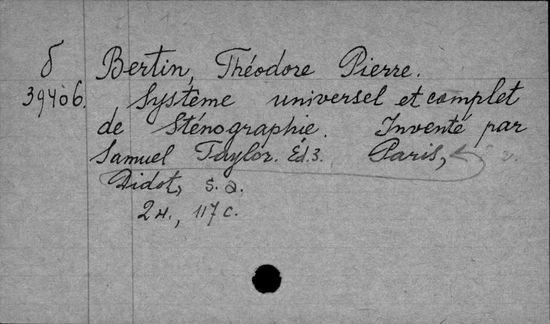 б Bertin, Théodore Pierre.
39406. Système universel et complet
de Sténographie. Inventé par
Samuel Taylor. Éd.3. Paris,
Didot, s.a.
2 н., 117 c.